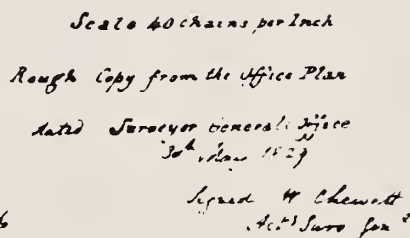 Scale 40 chains per Inch
Rough Copy from the Office Plan
dated Surveyor Generals Office
30th 1829
Signed W Chewett
Actg Surv Genl